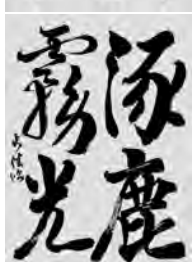 涿鹿
霧光